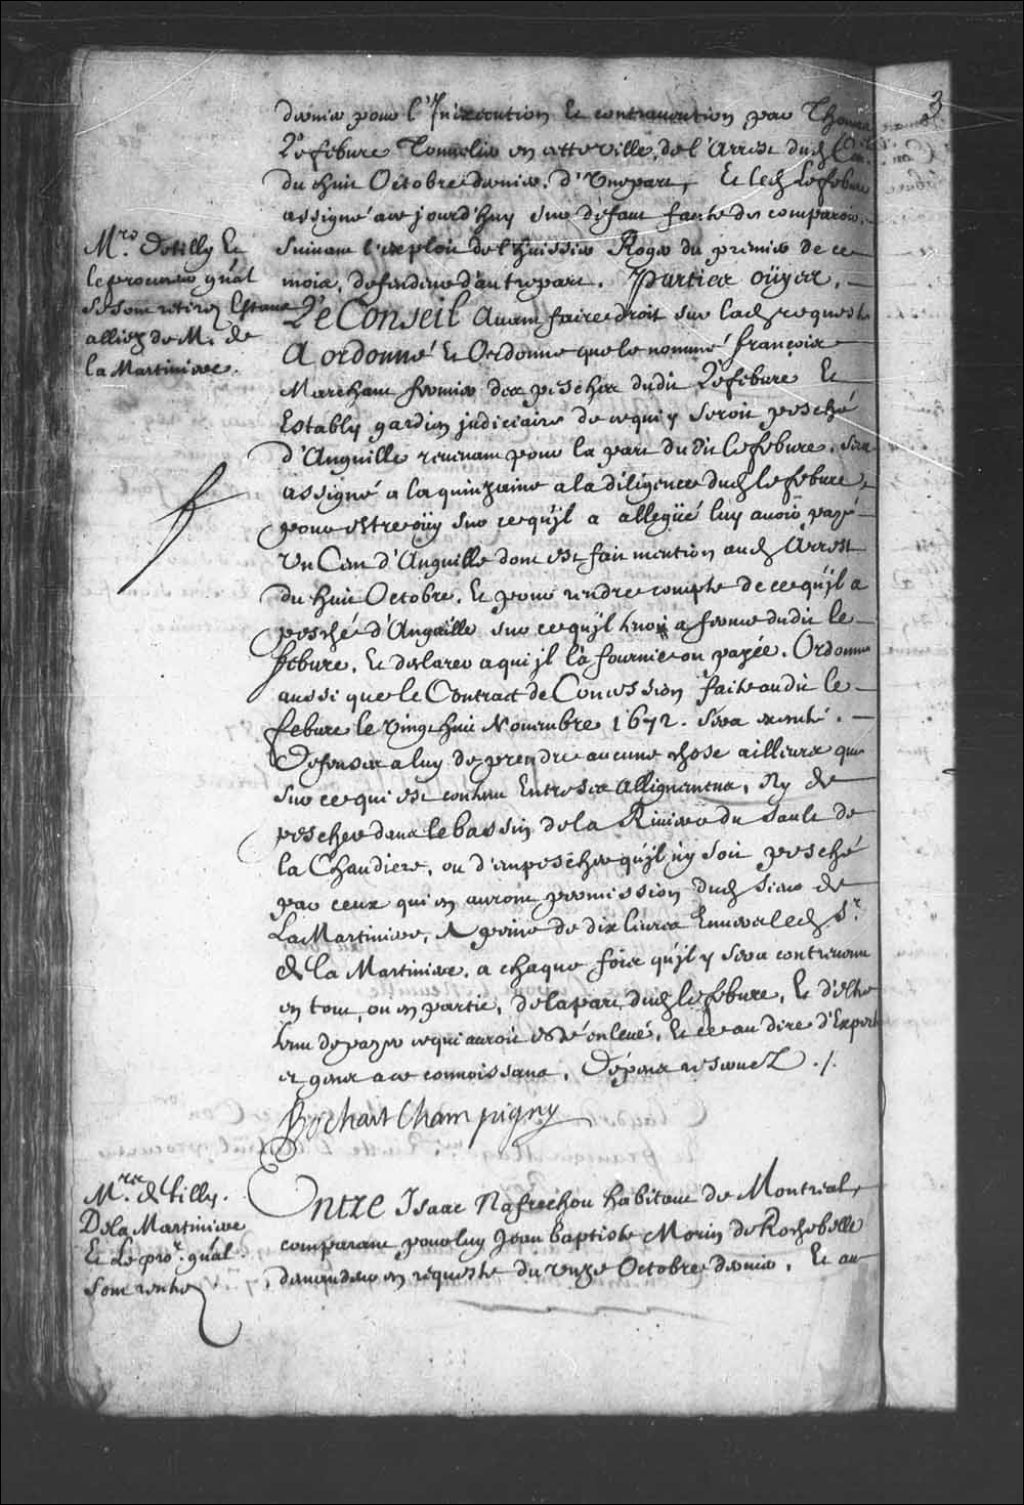 3
dernier pour l'Inexecution et contravention par Thomas
Lefebure Tonnelier en cette ville, de l'Arrest dud. Con.el
du huit Octobre dernier. d'Unepart, Et led. Lefebure
assigné a ce jourd'huy sur defaut faute de comparoir,
suivant l'exploit de l'huissier Roger du premier de ce
mois, defendeur d'autrepart. Parties oüyes.
Mrs. de tilly Et
le procureur g'nal
se sont retirez Estans
alliez de M. de
la Martiniere.
Le Conseil Avant faire droit sur lad. requeste
A ordonné Et Ordonne que le nommé françois
Marchant fermier des pesches dudit Lefebure Et
Estably gardien judiciaire de ce qui y seroit pesché
d'Anguille revenant pour la part dudit lefebure. sera
assigné a la quinzaine a la diligence dud. lefebure,
pour estre oüy sur ce qu'jl a allegüé luy avoir payé
Un Cent d'Anguille dont est fait mention aud. Arrest
du huit Octobre. Et pour rendre compte de ce qu'jl a
pesché d'Anguille sur ce qu'jl a ferme dudit le
febure. Et declarer a qui jl l'a fournie ou payée. Ordonne
aussi que le Contract de Concession faite audit le
febure le vingt huit Novembre 1672. sera executé.
Defenses a luy de prendre aucune chose ailleurs que
sur ce qui est contenu Entre ses allignemens, Ny de
pescher dans le bassin de la Riviere du Sault de
la Chaudiere, ou d'empescher qu'jl n'y soit pesché
par ceux qui en auront permission dud. sieur de
La Martiniere, A peine de dix livres Envers led. Sr.
de la Martiniere. a chaque fois qu'jl y sera contrevenu
en tout, ou en partie, de la part dud. lefebure, Et d'estre
tenu de payer ce qui auroit esté enlevé, Et ce au dire d'Expert
et gens a ce connoissans. Dépens reservez ./.
BochartChampigny
Mrs. de tilly.
De la Martiniere
Et Le pror. g'nal
sont rentrez
Entre Isaac Nafrechou habitant de Montreal,
comparant pour luy Jean baptiste Morin de Rochebelle
demandeur en requeste du Octobre dernier. Et au